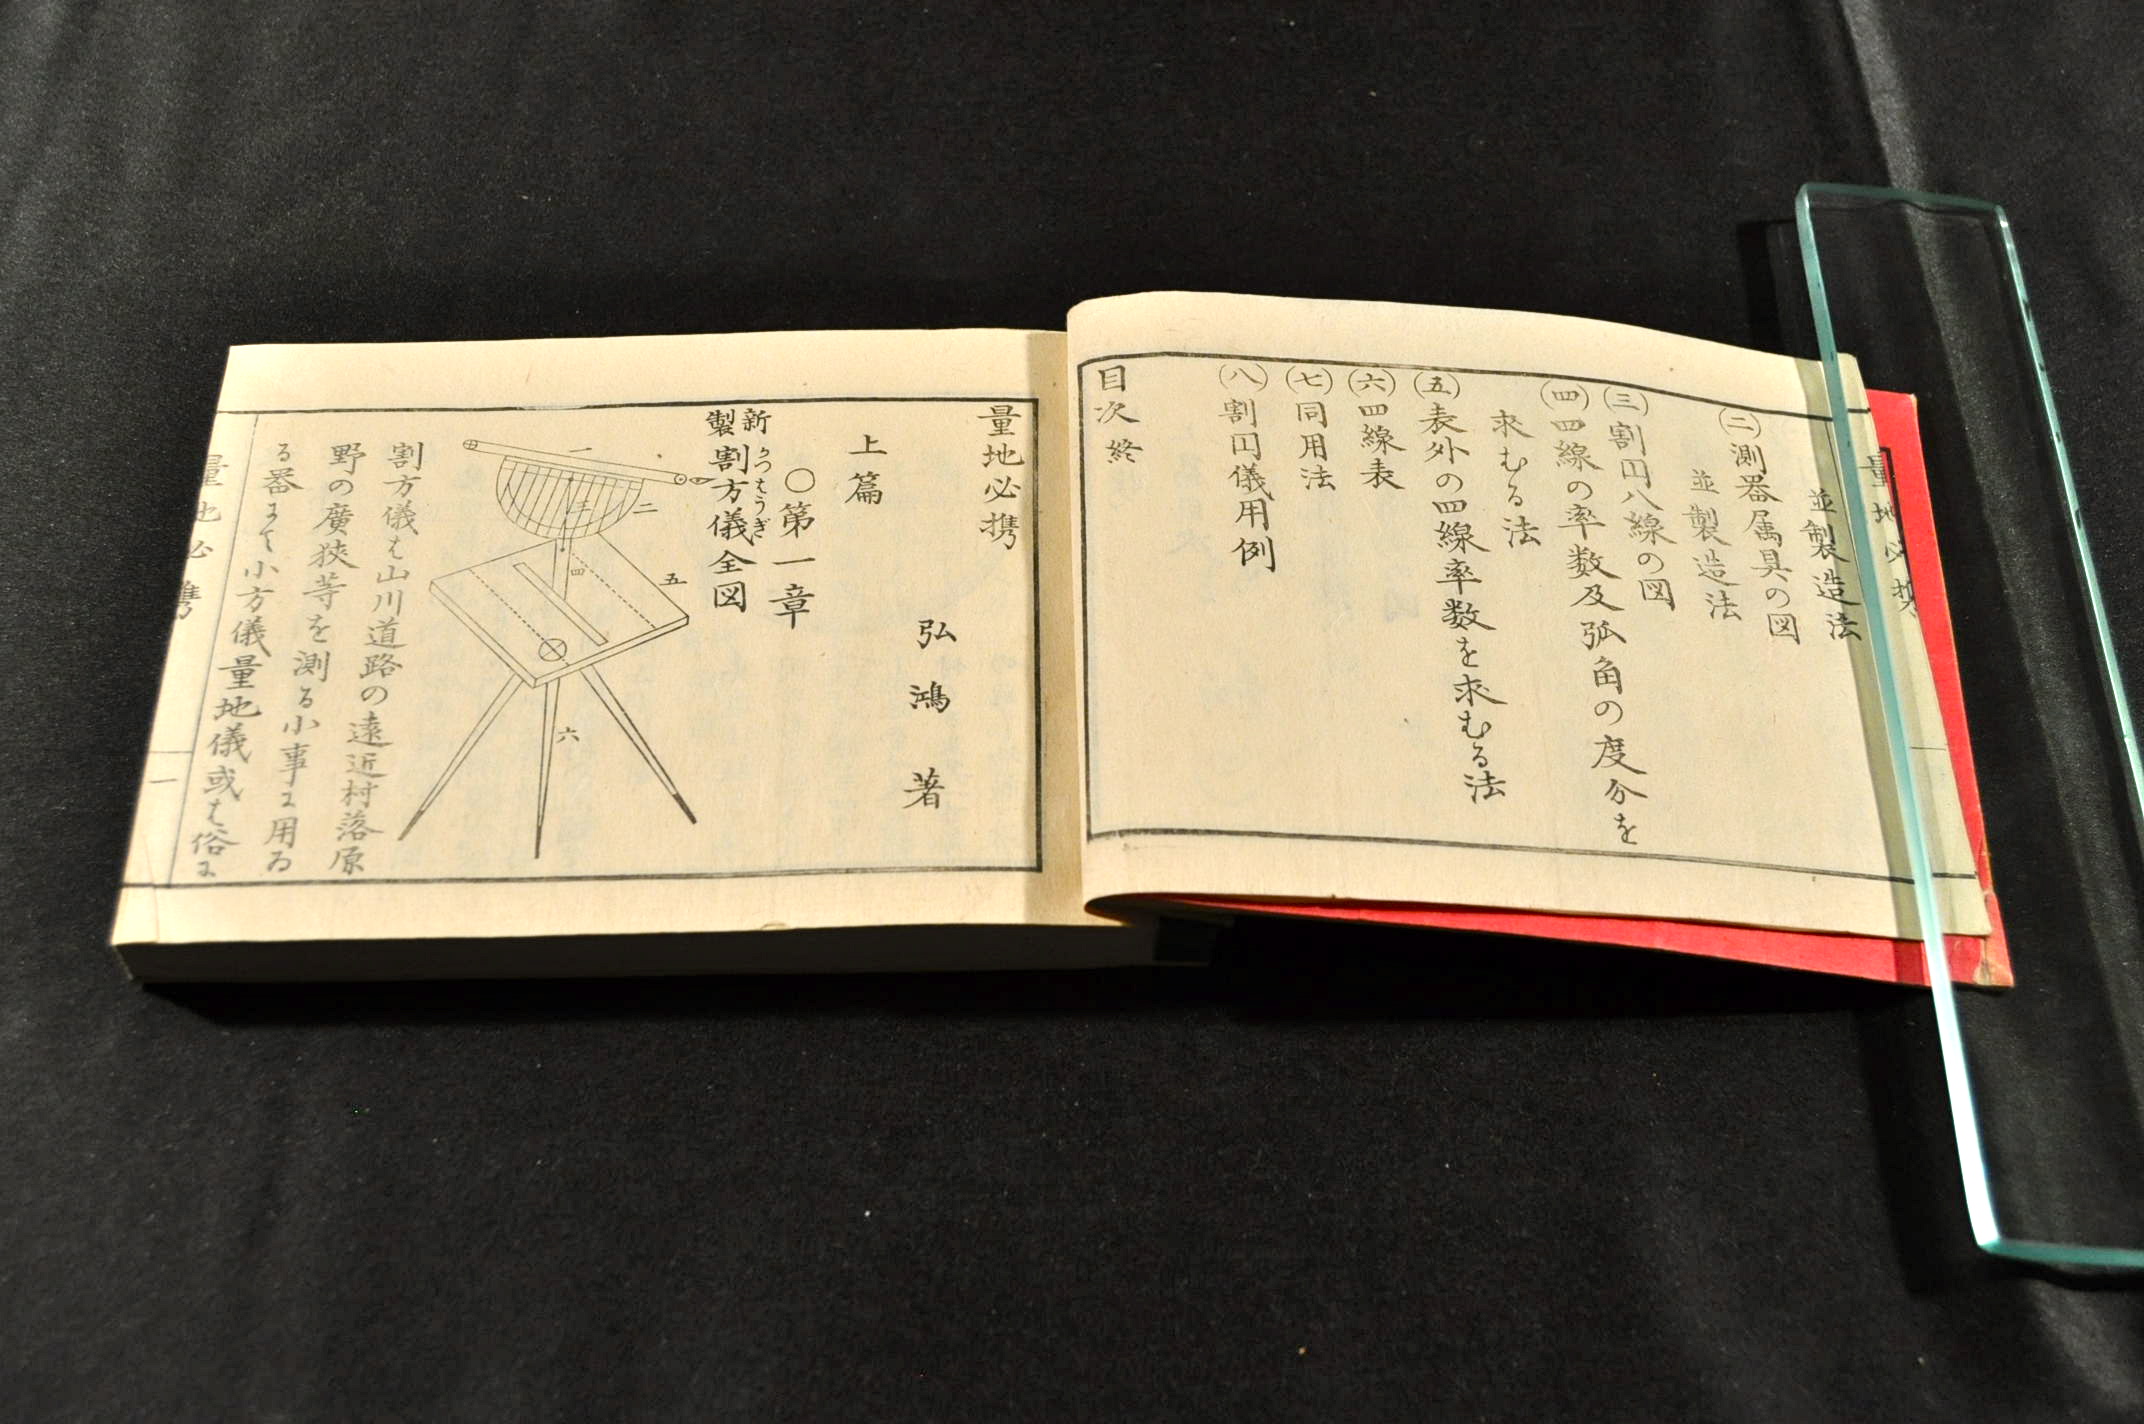 並製造法
(二)測器属具の図
並製造法
(三)割円八線の図
(四)四線の率数及弧角の度分を
求むる法
(五)表外の四線率数を求むる法
(六)四線表
(七)同用法
(八)割円儀用例
目次終
量地必携
弘鴻著
上篇
○第一章
新製割方儀全図
かつはうぎ
一
二
三
四
五
六
割方儀は山川道路の遠近村落原
野の廣狭等を測る小事に用ゐ
る器にて小方儀量地儀或は俗に
量地必携
一